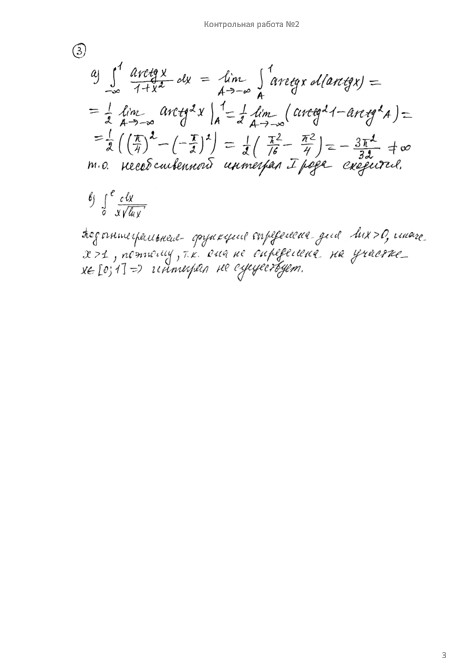 Контрольная работа №2
③
а) ∫_{-∞}^{1} arctgx/(1+x²) dx = lim_{A→-∞} ∫_{A}^{1} arctgx d(arctgx) =
= 1/2 lim_{A→-∞} arctg²x |_{A}^{1} = 1/2 lim_{A→-∞} (arctg²1 - arctg²A) =
= 1/2 ((π/4)² - (-π/2)²) = 1/2 (π²/16 - π²/4) = -3π²/32 ≠ ∞
т.о. несобственный интеграл I рода сходится.
в) ∫_{0}^{e} dx/(x√(lnx))
Подинтегральная функция определена для lnx>0, иначе
x>1, поэтому, т.к. она не определена на участке
x∈[0;1] => интеграл не существует.
3